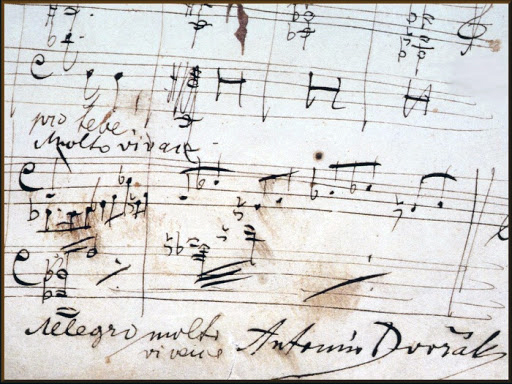 pro tebe.
Molto vivace
Allegro molto
vivace
Antonín Dvořák